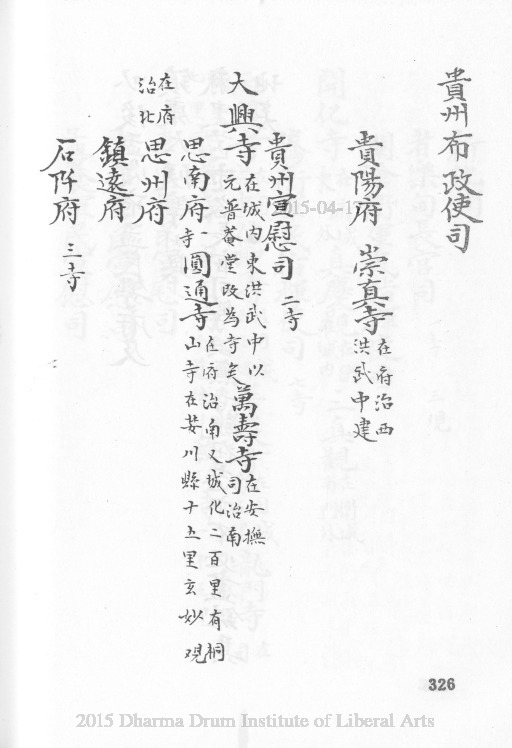 貴州布政使司
貴陽府 崇真寺 在府治西洪武中建
貴州宣慰司 二寺
大興寺 在城內東洪武中以元普菴堂改為寺矣 萬壽寺 在安撫司治南
思南府 一寺 圓通寺 在府治南又城化二百里有桐山寺在婺川縣十五里玄妙观
思州府 在府治北
鎮遠府
石阡府 三寺
2015-04-1
326
2015 Dharma Drum Institute of Liberal Arts